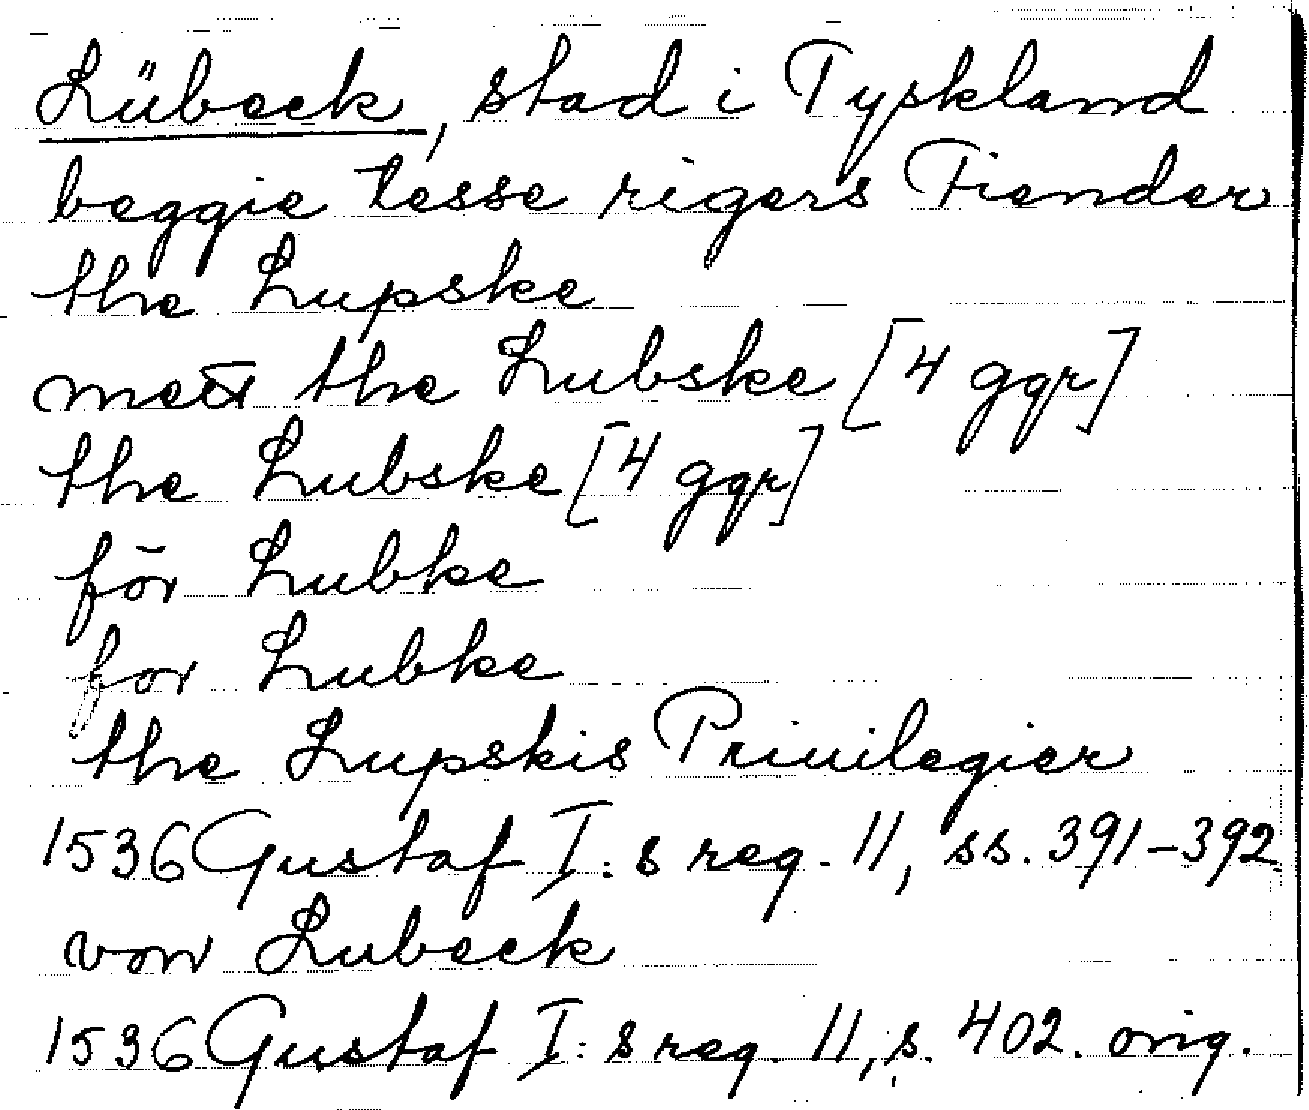 Lübeck, stad i Tyskland
beggie tesse rigers Fiender
the Lupske
mett the Lubske [4 ggr]
the Lubske [4 ggr]
för Lubke
for Lubke
the Lupskis Priuilegier
1536 Gustaf I:s reg. 11, ss. 391-392
von Lubeck
1536 Gustaf I:s reg. 11, s. 402. orig.